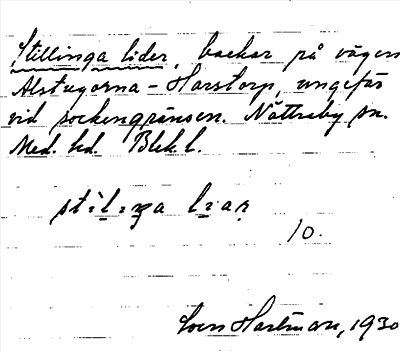 Stillinga lider, backar på vägen
Alstugorna - Harstorp, ungefär
vid sockengränsen. Nättraby sn.
Med. hd. Blek. l.
10.
Sven Hartman, 1930